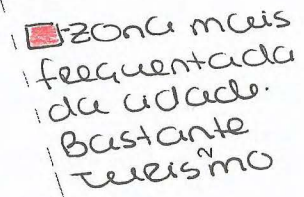 zona mais
frequentada
da cidade.
Bastante
turismo